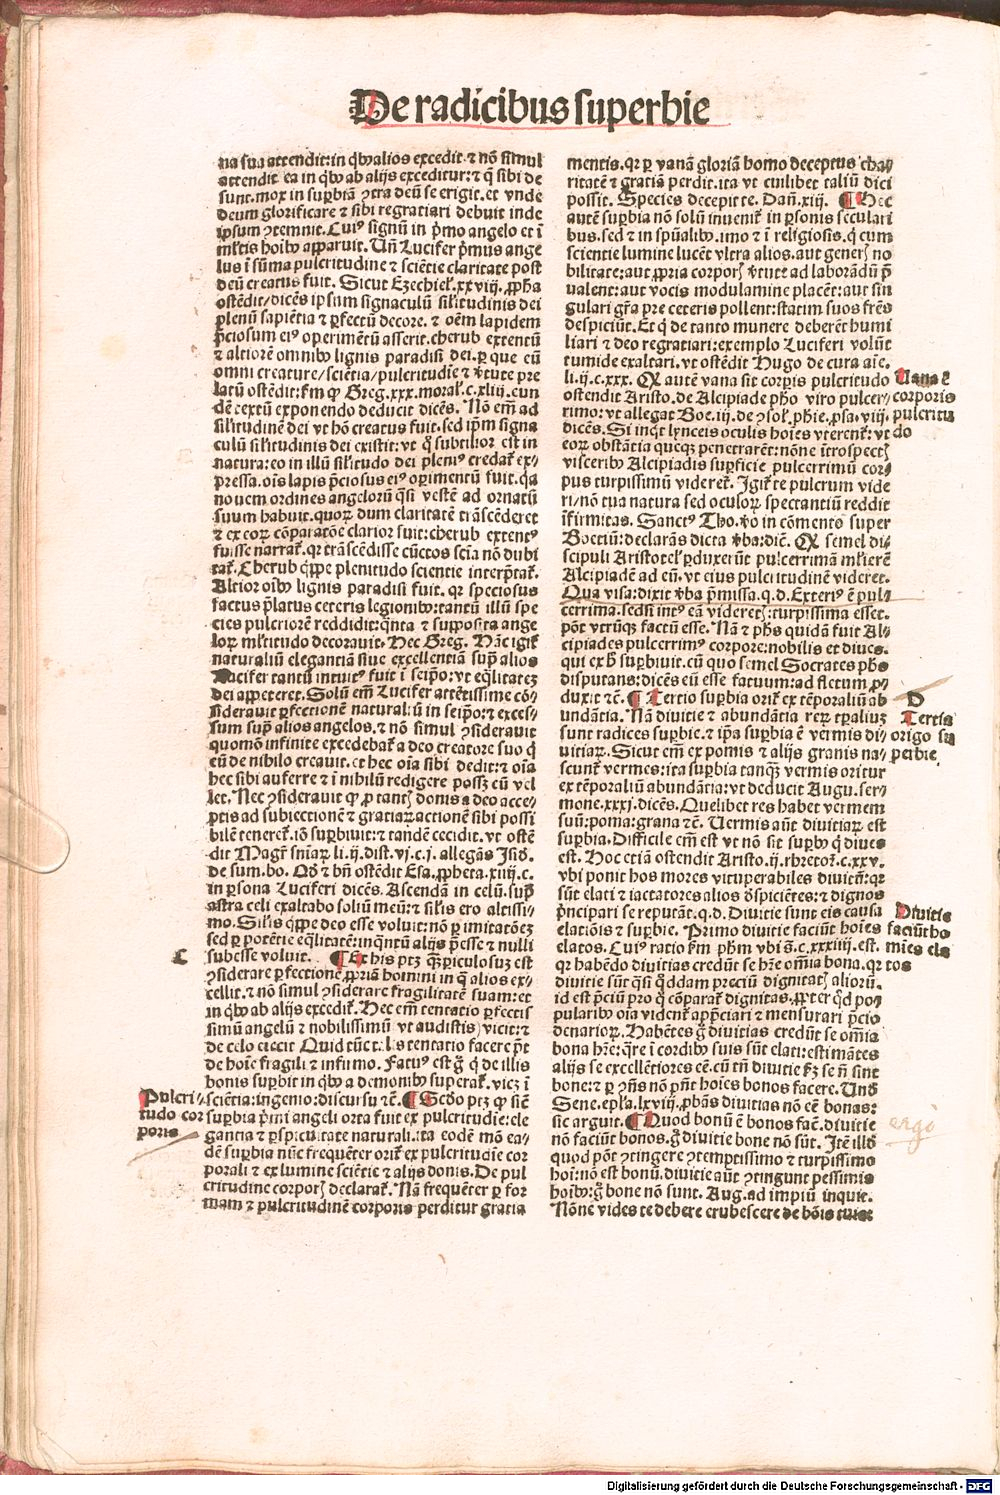 De radicibus superbie
na sua attendit: in qͥbꝰ alios excedit ⁊ nō simul
attendit ea in qͥbꝰ ab alijs exceditur: ⁊ q̄ sibi de
sunt. mox in suꝑbiā ꝯtra deū se erigit. et vnde
deum glorificare ⁊ sibi regratiari debuit inde
ipsum ꝯtemnit. Cuiꝰ signū in pͥmo angelo et ī
ml̓tis hoibꝰ apparuit. Un̄ Lucifer pͥmus ange
lus ī sūma pulcritudine ⁊ sciētie claritate post
deū creatus fuit. Sicut Ezechiel̓. xxviij. ꝓpha
ostēdit/dicēs ipsum signaculū sil̓itudinis dei
plenū sapiētia ⁊ ꝑfectū decore. ⁊ oēm lapidem
p̄ciosum eiꝰ operimētū asserit. cherub extentū
⁊ altiorē omnibꝰ lignis paradisi dei. ꝑ que eū
omni creature/sciētia/pulcritudīe ⁊ v̓tute pre
latū ostēdit: ẜm ꝙ Greg. xxx. moral̓. c. xliij. eun
dē textū exponendo deducit dicēs. Nō em̄ ad
sil̓itudinē dei vt hō creatus fuit. sed ip̄m signa
culū sil̓itudinis dei existit: vt q̄ subtilior est in
natura: eo in illū sil̓itudo dei pleniꝰ credat̓ ex⸗
pressa. oīs lapis p̄ciosus eiꝰ oꝑimentū fuit. qa
nouem ordines angelorū q̄si vestē ad ornatū
suum habuit. quoꝝ dum claritatē trāscēderet
⁊ ex eoꝝ cōparatōe clarior fuit: cherub extentꝰ
fuisse narrat̓. qꝛ trāscēdisse cūctos scīa nō dubi
tat̓. Cherub q̄ppe plenitudo scientie interp̄tat̓.
Altior oībꝰ lignis paradisi fuit. qꝛ speciosus
factus p̄latus ceteris legionibꝰ: tantū illū spe
cies pulcriorē reddidit: q̄nta ⁊ supposita ange
loꝝ ml̓titudo decorauit. Hec Greg. Hāc igit̓
naturaliū elegantiā siue excellentiā suꝑ alios
Lucifer tantū intuitꝰ fuit ī seipo: vt eq̄litatez
dei appeteret. Solū em̄ Lucifer attētissime cō⸗
siderauit ꝑfectionē naturaliū in seipo: ⁊ exces⸗
sum suꝑ alios angelos. ⁊ nō simul ꝯsiderauit
quomō infinite excedebat̓ a deo creatore suo q̄
eū de nihilo creauit. et hec oīa sibi dedit: ⁊ oīa
hec sibi auferre ⁊ ī nihilū redigere possꝫ cū vel
let. Nec ꝯsiderauit ꝙ ꝓ tantꝭ donis a deo acce⸗
ptis ad subiectionē ⁊ gratiaꝝ actionē sibi possi
bilē teneret̓. iō suꝑbiuit: ⁊ tandē cecidit. vt ostē
dit Magr̄ sniaꝝ li. ij. dist. vj. c. j. allegās Isid.
de sum. bo. Qd̄ ⁊ bn̄ ostēdit Esa. ꝓpheta. xiiij. c.
in ꝑsona Luciferi dicēs. Ascendā in celū. suꝑ
astra celi exaltabo soliū meū: ⁊ sil̓is ero altissi⸗
mo. Sil̓is q̄ppe deo esse voluit: nō ꝑ imitatōeꝫ
sed ꝑ potētie eq̄litatē: inq̄ntū alijs p̄esse ⁊ nulli
subesse voluit. ¶ Et his ptꝫ q̄ꝫ ꝑiculosuꝫ est
ꝯsiderare ꝑfectionē ꝓpriā homini in q̄ alios ex⸗
cellit. ⁊ nō simul ꝯsiderare fragilitatē suam: et
in qͥbꝰ ab alijs excedit̓. Hec em̄ tentatio ꝑfectis
simū angelū ⁊ nobilissimū vt audistis vicit: ⁊
de celo eiecit Quid tūc talis tentatio facere pōt
de hoīe fragili ⁊ infimo. Fatuꝰ est g̊ q̄ de illis
bonis suꝑbit in qͥbꝰ a demonibꝰ superat̓. viꝫ ī
sciētia: ingenio: discursu ⁊c̄. ¶ Scd̄o ptꝫ ꝙ sic̄
suꝑbia pͥmi angeli orta fuit ex pulcritudīe: ele
gantia ⁊ ꝑspicuitate naturali. ita eodē mō ea⸗
dē suꝑbia nūc frequēter orit̓ ex pulcritudīe cor
porali ⁊ ex lumine sciētie ⁊ alijs donis. De pul
critudine corporꝭ declarat̓. Nā frequēter ꝑ for
mam ⁊ pulcritudinē corporis perditur gratia
C
Pulcri⸗
tudo cor
poris
mentis. qꝛ ꝑ vanā gloriā homo deceptus cha⸗
ritatē ⁊ gratiā perdit. ita vt cuilibet taliū dici
possit. Species decepit te. Dan̄. xiij. ¶ Hec
autē suꝑbia nō solū inuenit̓ in ꝑsonis seculari
bus. sed ⁊ in spūalibꝰ. imo ⁊ ī religiosis. q̄ cum
scientie lumine lucēt vltra alios. aut generꝭ no
bilitate: aut ꝓpria corporꝭ v̓tute ad laborādū p̄
ualent: aut vocis modulamine placēt: aut sin
gulari gr̄a pre ceteris pollent: statim suos fr̄es
despiciūt. Et q̄ de tanto munere deberēt humi
liari ⁊ deo regratiari: exemplo Luciferi volūt
tumide exaltari. vt ostēdit Hugo de cura aīe.
li. ij. c. xxx. Qꝫ autē vana sit corꝑis pulcritudo
ostendit Aristo. de Alcipiade pho viro pulcer⸗
rimo: vt allegat Boe. iij. de ꝯsol̓. phie. ꝓsa. viij.
dicēs. Si inqt̄ lynceis oculis hoīes vterent̓: vt
eoꝝ obstātia quecꝫ penetrarēt: nōne ītrospectꝭ
visceribꝰ Alcipiadis suꝑficie pulcerrimū cor⸗
pus turpissimū videret̓. Igit̓ te pulcrum vide
ri/nō tua natura sed oculoꝝ spectantiū reddit
īfirmitas. Sanctꝰ Tho. v̓o in cōmento super
Boetiū: declarās dicta v̓ba: dic̄. Qꝫ semel di⸗
scipuli Aristotel̓ ꝑduxerūt pulcerrimā ml̓ierē
Alcipiadē ad eū. vt eius pulcritudinē videret.
Qua visa: dixit v̓ba p̄missa. q. d. Exteriꝰ ē pul⸗
cerrima. sed si intꝰ eā videretꝭ: turpissima esset.
pōt vtrūqꝫ factū esse. Nā ⁊ phs quidā fuit Al⸗
cipiades pulcerrimꝰ corpore: nobilis et diues.
qui ex h̄ suꝑbiuit. cū quo semel Socrates phs
disputans: dicēs eū esse fatuum: ad fletum ꝓ⸗
duxit ⁊c̄. ¶ Tertio suꝑbia orit̓ ex tēporaliū ab
undātia. Nā diuitie ⁊ abundātia reꝝ tꝑaliuꝫ
sunt radices suꝑbie. ⁊ ip̄a suꝑbia ē vermis di⸗
uitiaꝝ. Sicut em̄ ex pomis ⁊ alijs granis na⸗
scunt̓ vermes: ita suꝑbia tanqꝫ vermis oritur
ex tēporaliū abundātia: vt deducit Augu. ser⸗
mone. xxxj. dicēs. Quelibet res habet vermem
suū: poma: grana ⁊c̄. Uermis aūt diuitiaꝝ est
suꝑbia. Difficile em̄ est vt nō sit suꝑbꝰ q̄ diues
est. Hoc etiā ostendit Aristo. ij. rhetoꝝ. c. xxv.
vbi ponit hos mores vituperabiles diuitū: qꝛ
sūt elati ⁊ iactatores alios d̓spiciētes: ⁊ dignos
p̄ncipari se reputāt. q. d. Diuitie sunt eis causa
elatiōis ⁊ suꝑbie. Primo diuitie faciūt hoīes
elatos. Cuiꝰ ratio ẜm phm vbi s̄. c. xxxiiij. est.
qꝛ habēdo diuitias credūt se hr̄e om̄ia bona. qꝛ
diuitie sūt q̄si q̄ddam preciū dignitatꝭ alioru̅.
id est p̄ciū pro q̄ cōparat̓ dignitas. ꝓpter qd̄ po⸗
pularibꝰ oīa vident̓ app̄ciari ⁊ mensurari p̄cio
denarioꝝ. Habētes g̊ diuitias credūt se om̄ia
bona hr̄e: q̄re ī cordibꝰ suis sūt elati: estimātes
alijs se excellētiores eē. cū tn̄ diuitie ẜꝫ se n̄ sint
bone: ⁊ ꝑ ꝯn̄s nō pn̄t hoīes bonos facere. Und̄
Sene. epl̄a. lxviij. ꝓbās diuitias nō eē bonas:
sic arguit. ¶ Quod bonū ē bonos fac̄. diuitie
nō faciūt bonos. g̊ diuitie bone nō sūt. Itē illd̄
quod pōt ꝯtingere ꝯtemptissimo ⁊ turpissimo
hoi: nō est bonū. diuitie aūt ꝯtingunt pessimis
hoībꝰ: g̊ bone nō sunt. Aug. ad impiū inquit.
Nōne vides te debere erubescere de bōis tuis:
Uana ē
corporis
pulcritu
do
D
Tertia
origo su
perbie.
Diuitie
faciūt ho
mīes ela
tos
ergo
Digitalisierung gefördert durch die Deutsche Forschungsgemeinschaft - DFG